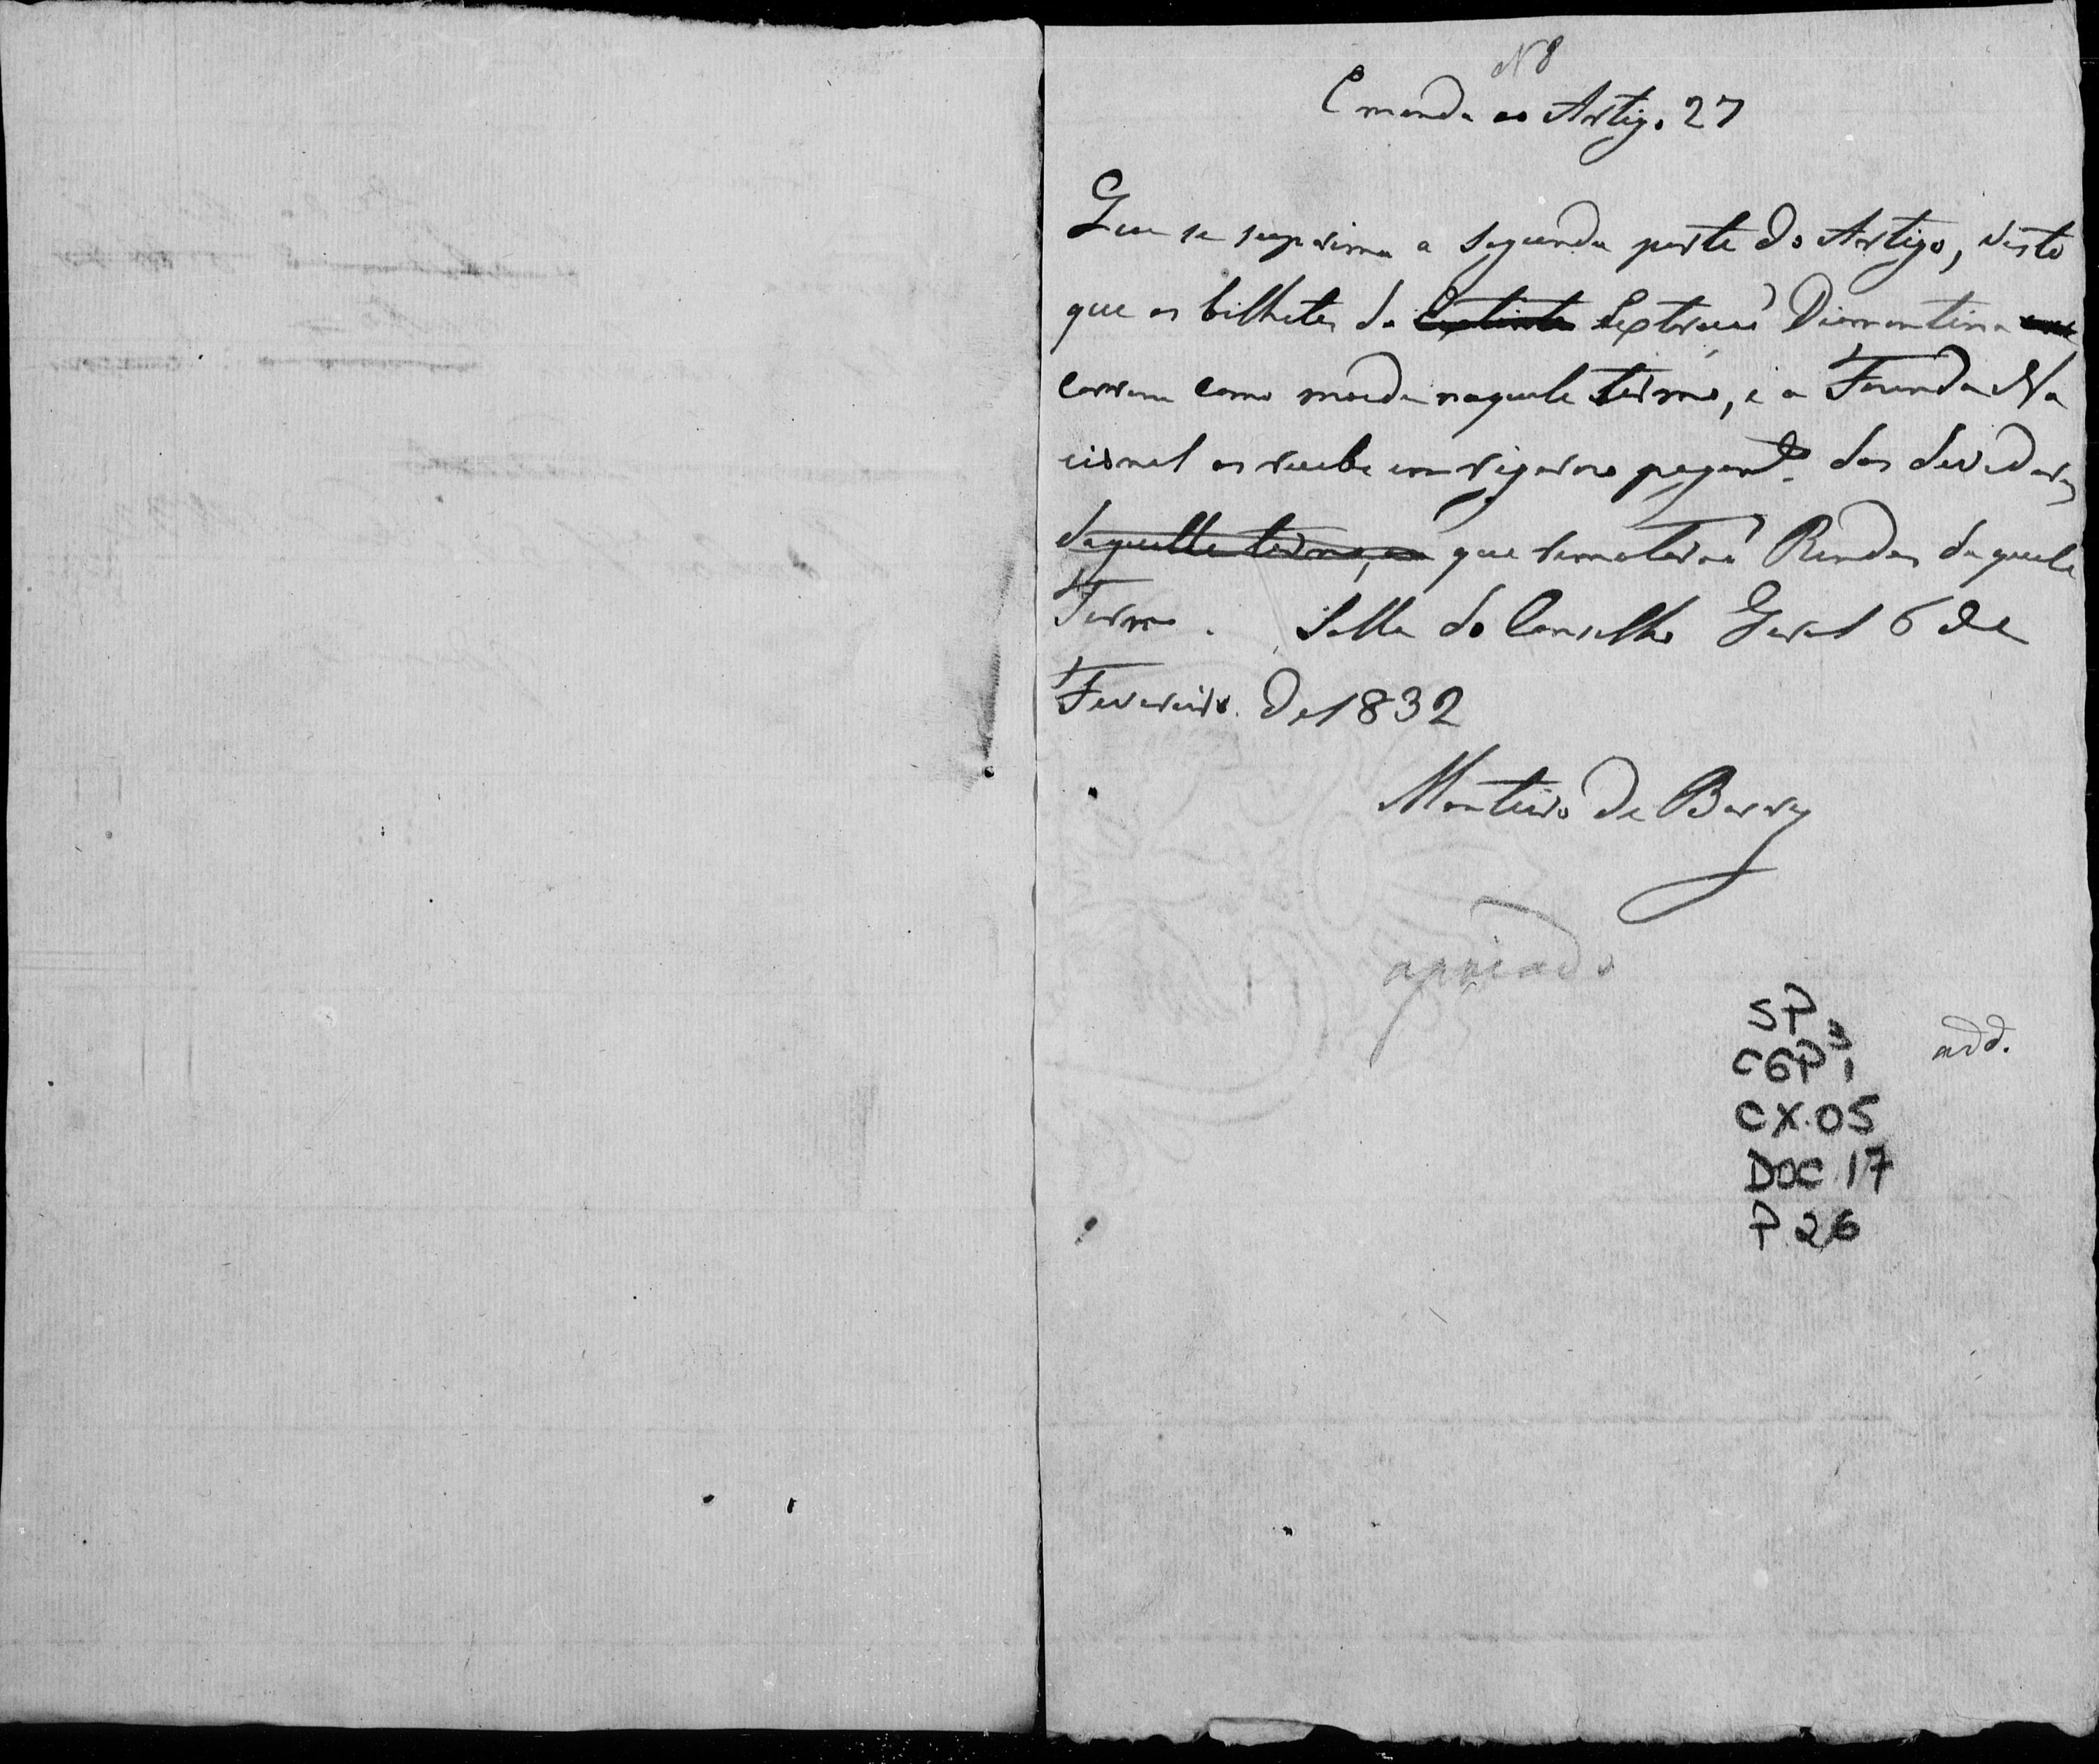 N 8
Emenda ao Artigo 27
Que se suprima a segunda parte do Artigo, visto
que os bilhetes da Extincta Extração Diamantina
correm como moeda naquele termo, e a Fazenda Na
cional os recebe em rigoroso pagamto. dos devedores
daquelle termo, que rematarão Rendas daquele
Termo. Salla do Conselho Geral 6 de
Fevereiro de 1832
Monteiro de Barros
apoiado
SP
CGP 3
1
add.
CX. 05
DOC. 17
P. 26